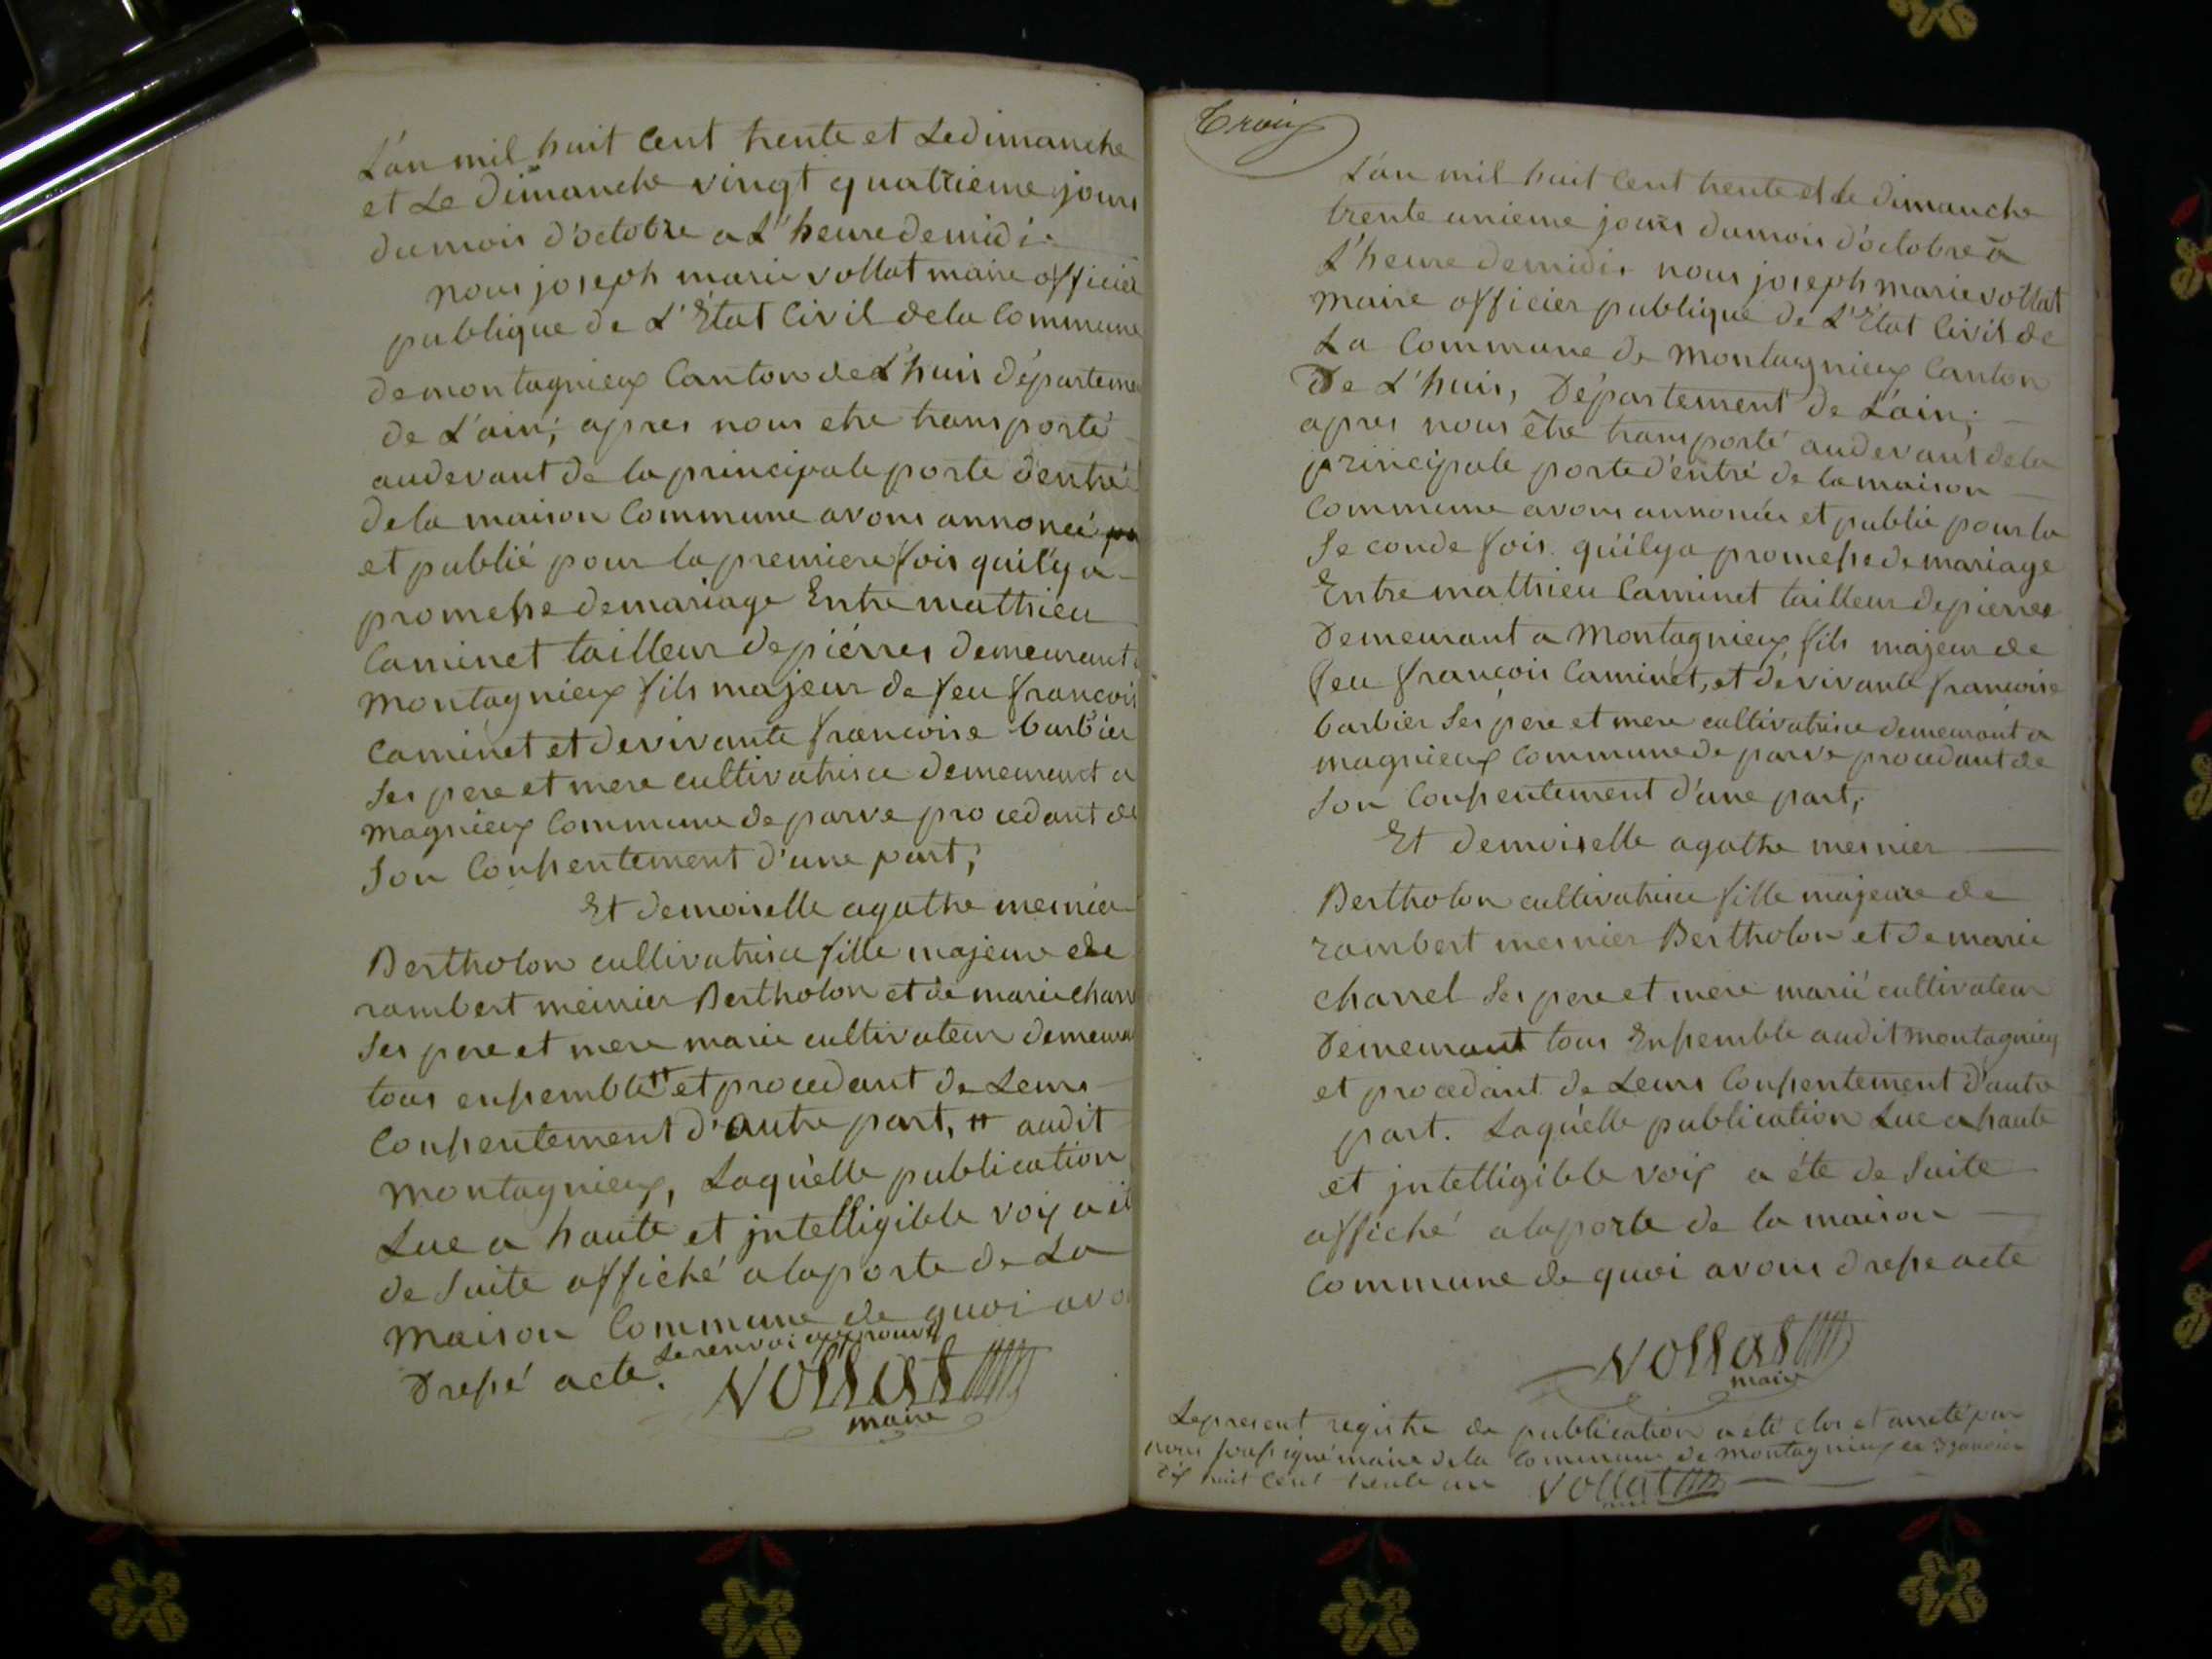 L'an mil huit Cent trente et Le dimanche
et Le dimanche vingt quatrieme jours
du mois d'octobre a L'heure de midi.
nous joseph marie vollat maire officier
publique de L'Etat Civil de la Commune
de montagnieux Canton de L'huis départeme
de L'ain; apres nous etre transporté
au devant de la principale porte d'entré
de la maison Commune avons annoncé
et publié pour la premiere fois qu'il y a
promesse de mariage Entre matthieu
Caminet tailleur de piérres demeurant
montagnieux fils majeur de feu francois
Caminet et de vivante francoise barbier
Ses pere et mere cultivatrice demeurant a
magnieux Commune de parve procedant de
Son Consentement d'une part;
Et demoiselle agathe meinier
Bertholon cultivatrice fille majeure de
rambert meinier Bertholon et de marie chan
Ses pere et mere marié cultivateur demeura
tous ensemble # et procedant de Leurs
Consentement d'autre part, # audit
montagnieux, Laquelle publication
Lue a haute et jntelligible voix a ét
de Suite affiché a la porte de La
maison Commune de quoi avo
Dressé acte. Le renvoi approuvé
vollat
maire
Trois
L'an mil huit Cent trente et le dimanche
trente unieme jours du mois d'octobre a
L'heure de midi. nous joseph marie vollat
maire officier publique de L'Etat Civil de
La Commune de montagnieux Canton
De L'huis, Département de L'ain;
apres nous être transporté au devant de la
principale porte d'entré de la maison
Commune avons annoncée et publié pour la
Seconde fois qu'il y a promesse de mariage
Entre matthieu Caminet tailleur de pierres
Demeurant a Montagnieux, fils majeur de
feu francois Caminet, et de vivante francoise
barbier Ses pere et mere cultivatrice demeurant a
magnieux Commune de parve procedant de
Son Consentement d'une part;
Et demoiselle agathe meinier
Bertholon cultivatrice fille majeure de
rambert meinier Bertholon et de marie
charrel Ses pere et mere marié cultivateur
Demeurant tous Ensemble audit montagnieux
et procedant de Leurs Consentement d'autre
part. Laquelle publication Lue a haute
et jntelligible voix a éte de Suite
affiché a la porte de la maison
Commune de quoi avons dresse acte
vollat
maire
Le present registre de publication a été clos et arreté par
nous soussigné maire de la Commune de montagnieux ce 3 janvier
dix huit Cent trente un vollat